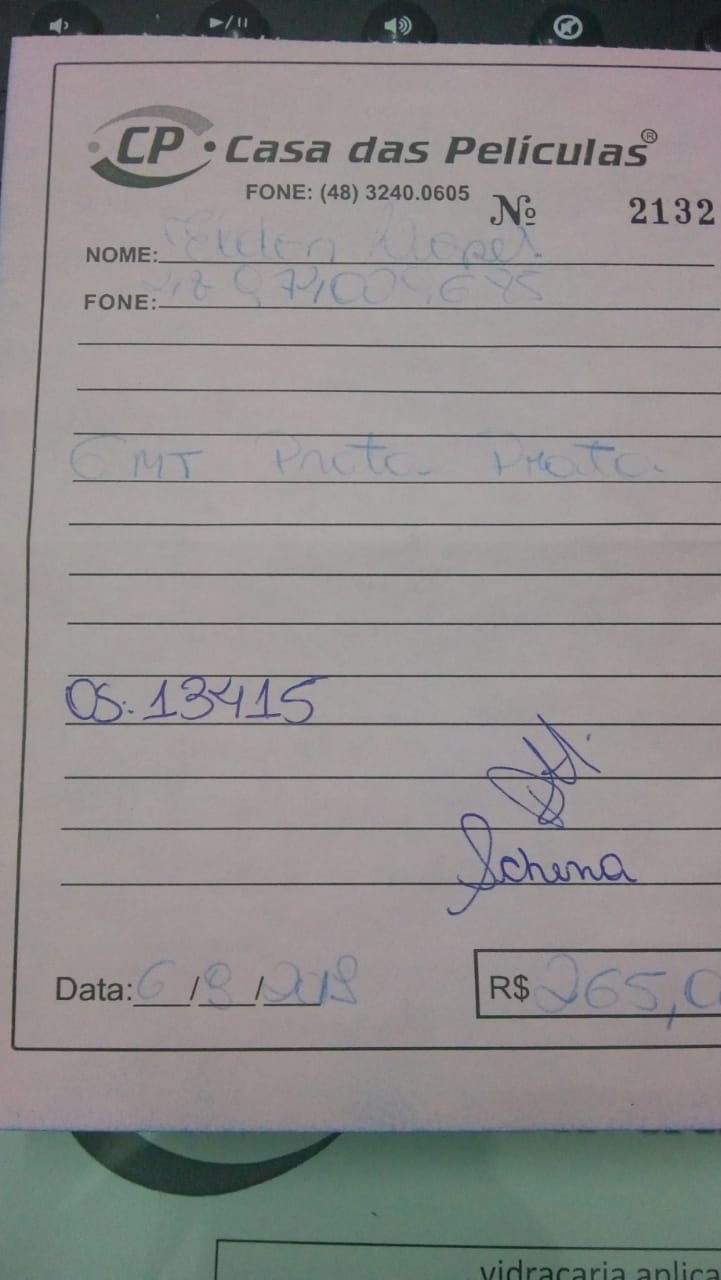 CP Casa das Películas®
FONE: (48) 3240.0605
Nº 2132
NOME:
FONE:
6MT Preto Prata
OS: 13415
Schena
Data: 6/9/2019
R$ 265,0
vidraçaria aplica